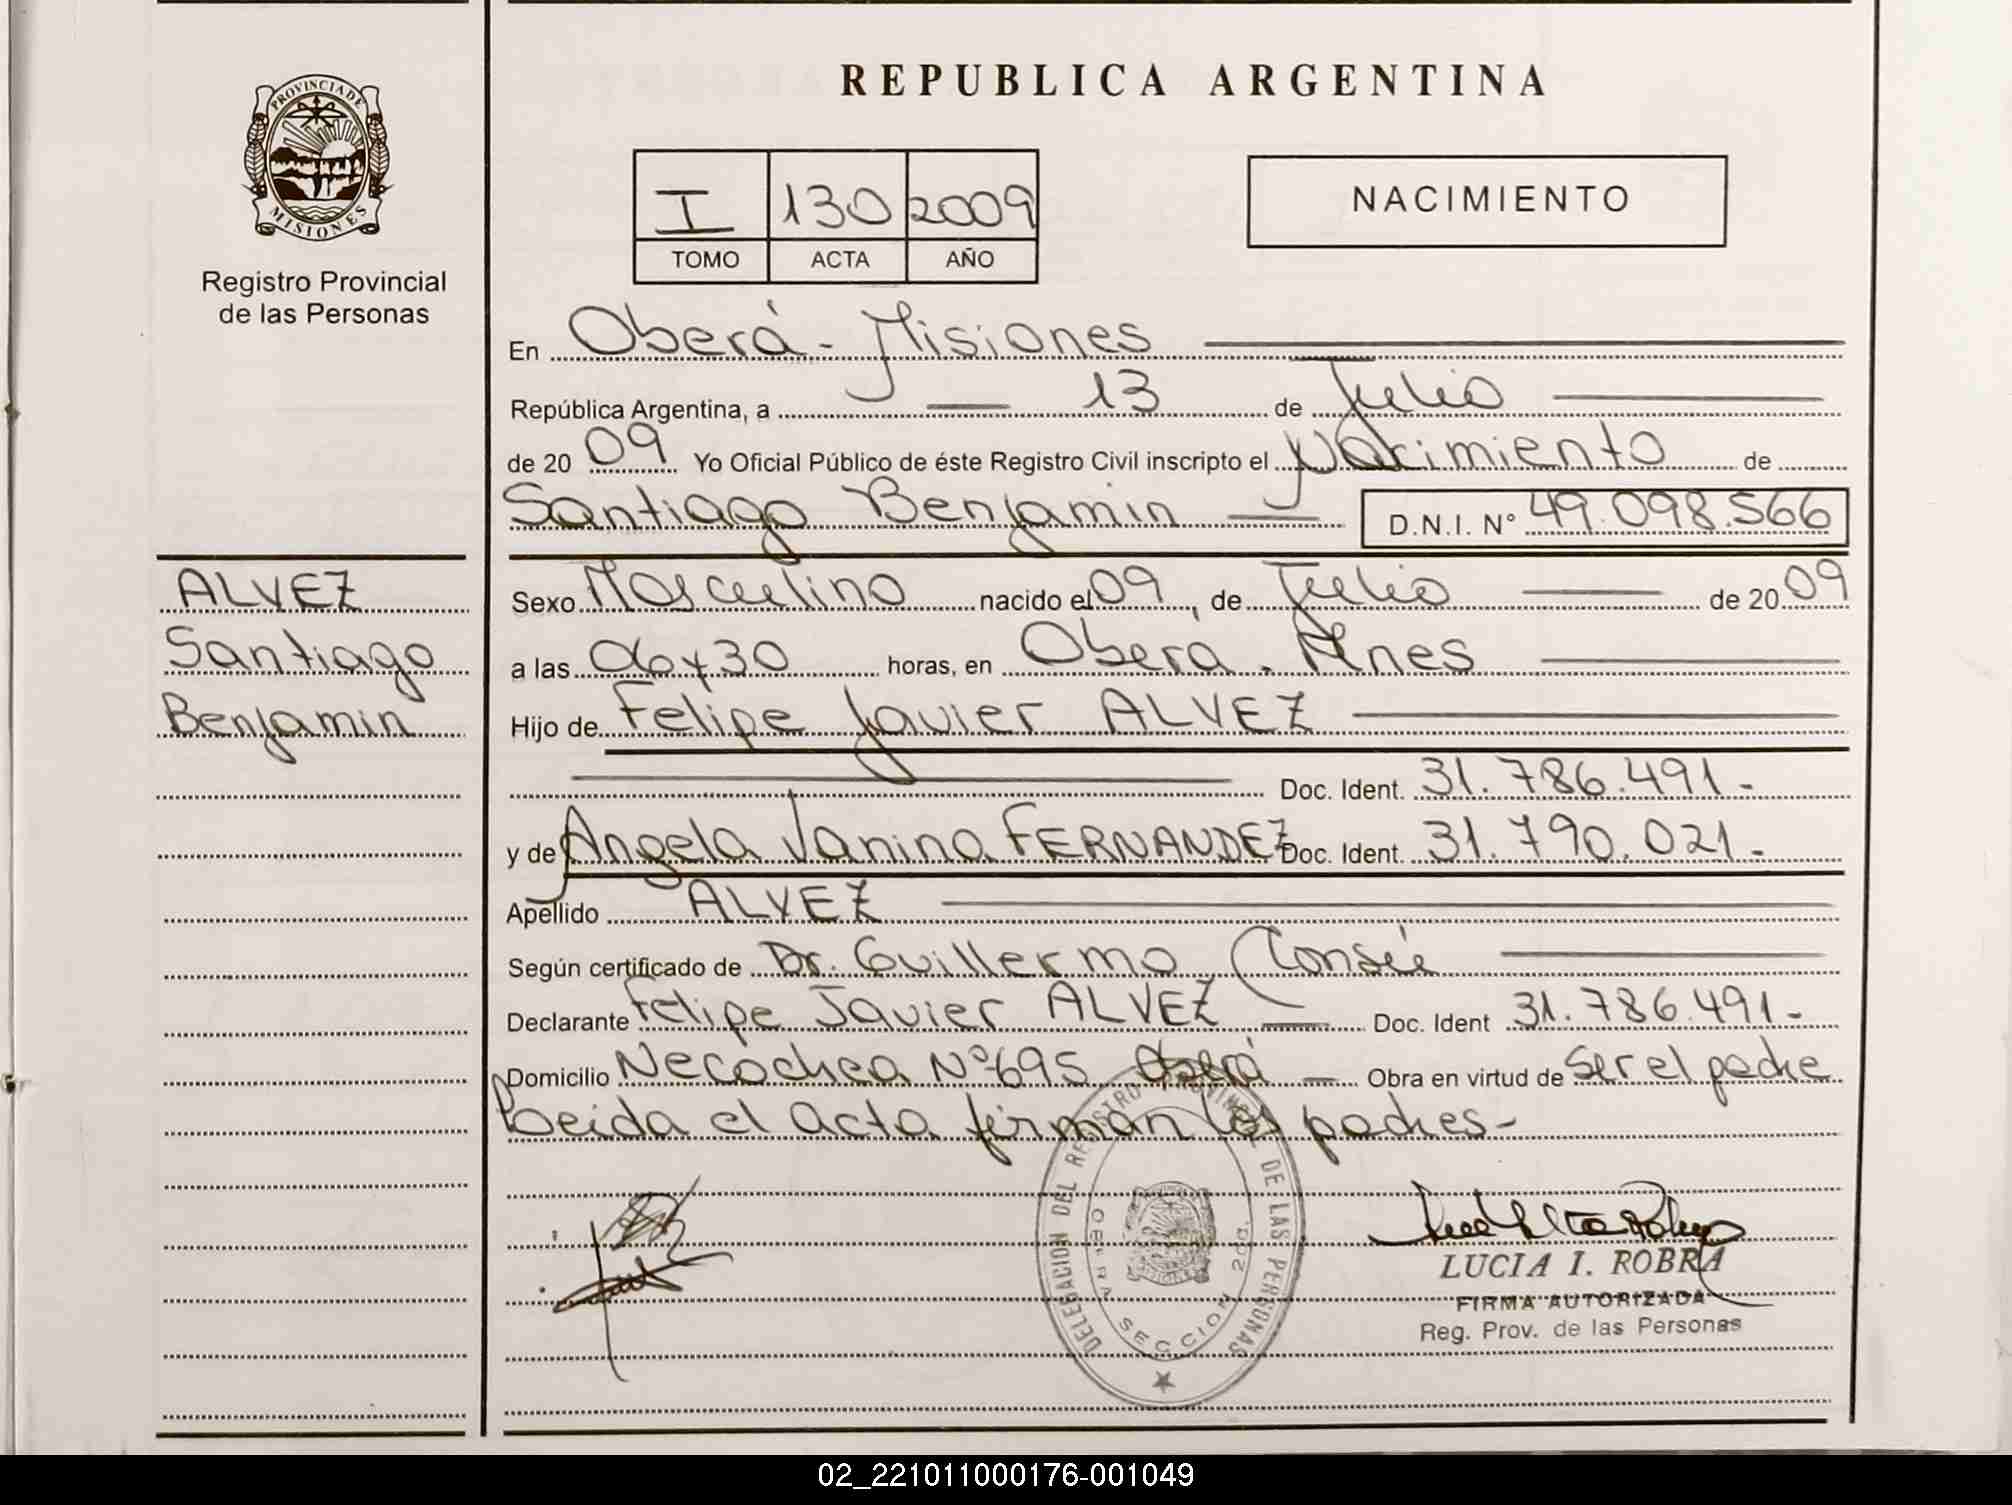 PROVINCIA DE
MISIONES
Registro Provincial
de las Personas
ALVEZ
Santiago
Benjamin
REPUBLICA ARGENTINA
I 130 2009
TOMO ACTA AÑO
NACIMIENTO
En Oberá - Misiones
República Argentina, a 13 de Julio
de 20 09 Yo Oficial Público de éste Registro Civil inscripto el Nacimiento de
Santiago Benjamin D.N.I. N° 49.098.566
Sexo Masculino nacido el 09, de Julio de 20 09
a las 06 y 30 horas, en Oberá. Mnes
Hijo de Felipe Javier ALVEZ
Doc. Ident. 31.786.491-
y de Angela Vanina FERNANDEZ Doc. Ident. 31.790.021-
Apellido ALVEZ
Según certificado de Dr. Guillermo
Declarante Felipe Javier ALVEZ Doc. Ident 31.786.491-
Domicilio Necochea Nº 695 Oberá Obra en virtud de ser el padre
Leida el acta firman los padres-
DELEGACION DEL REGISTRO PROVINCIAL DE LAS PERSONAS
OBERA SECCION 2da.
LUCIA I. ROBRA
FIRMA AUTORIZADA
Reg. Prov. de las Personas
02_221011000176-001049